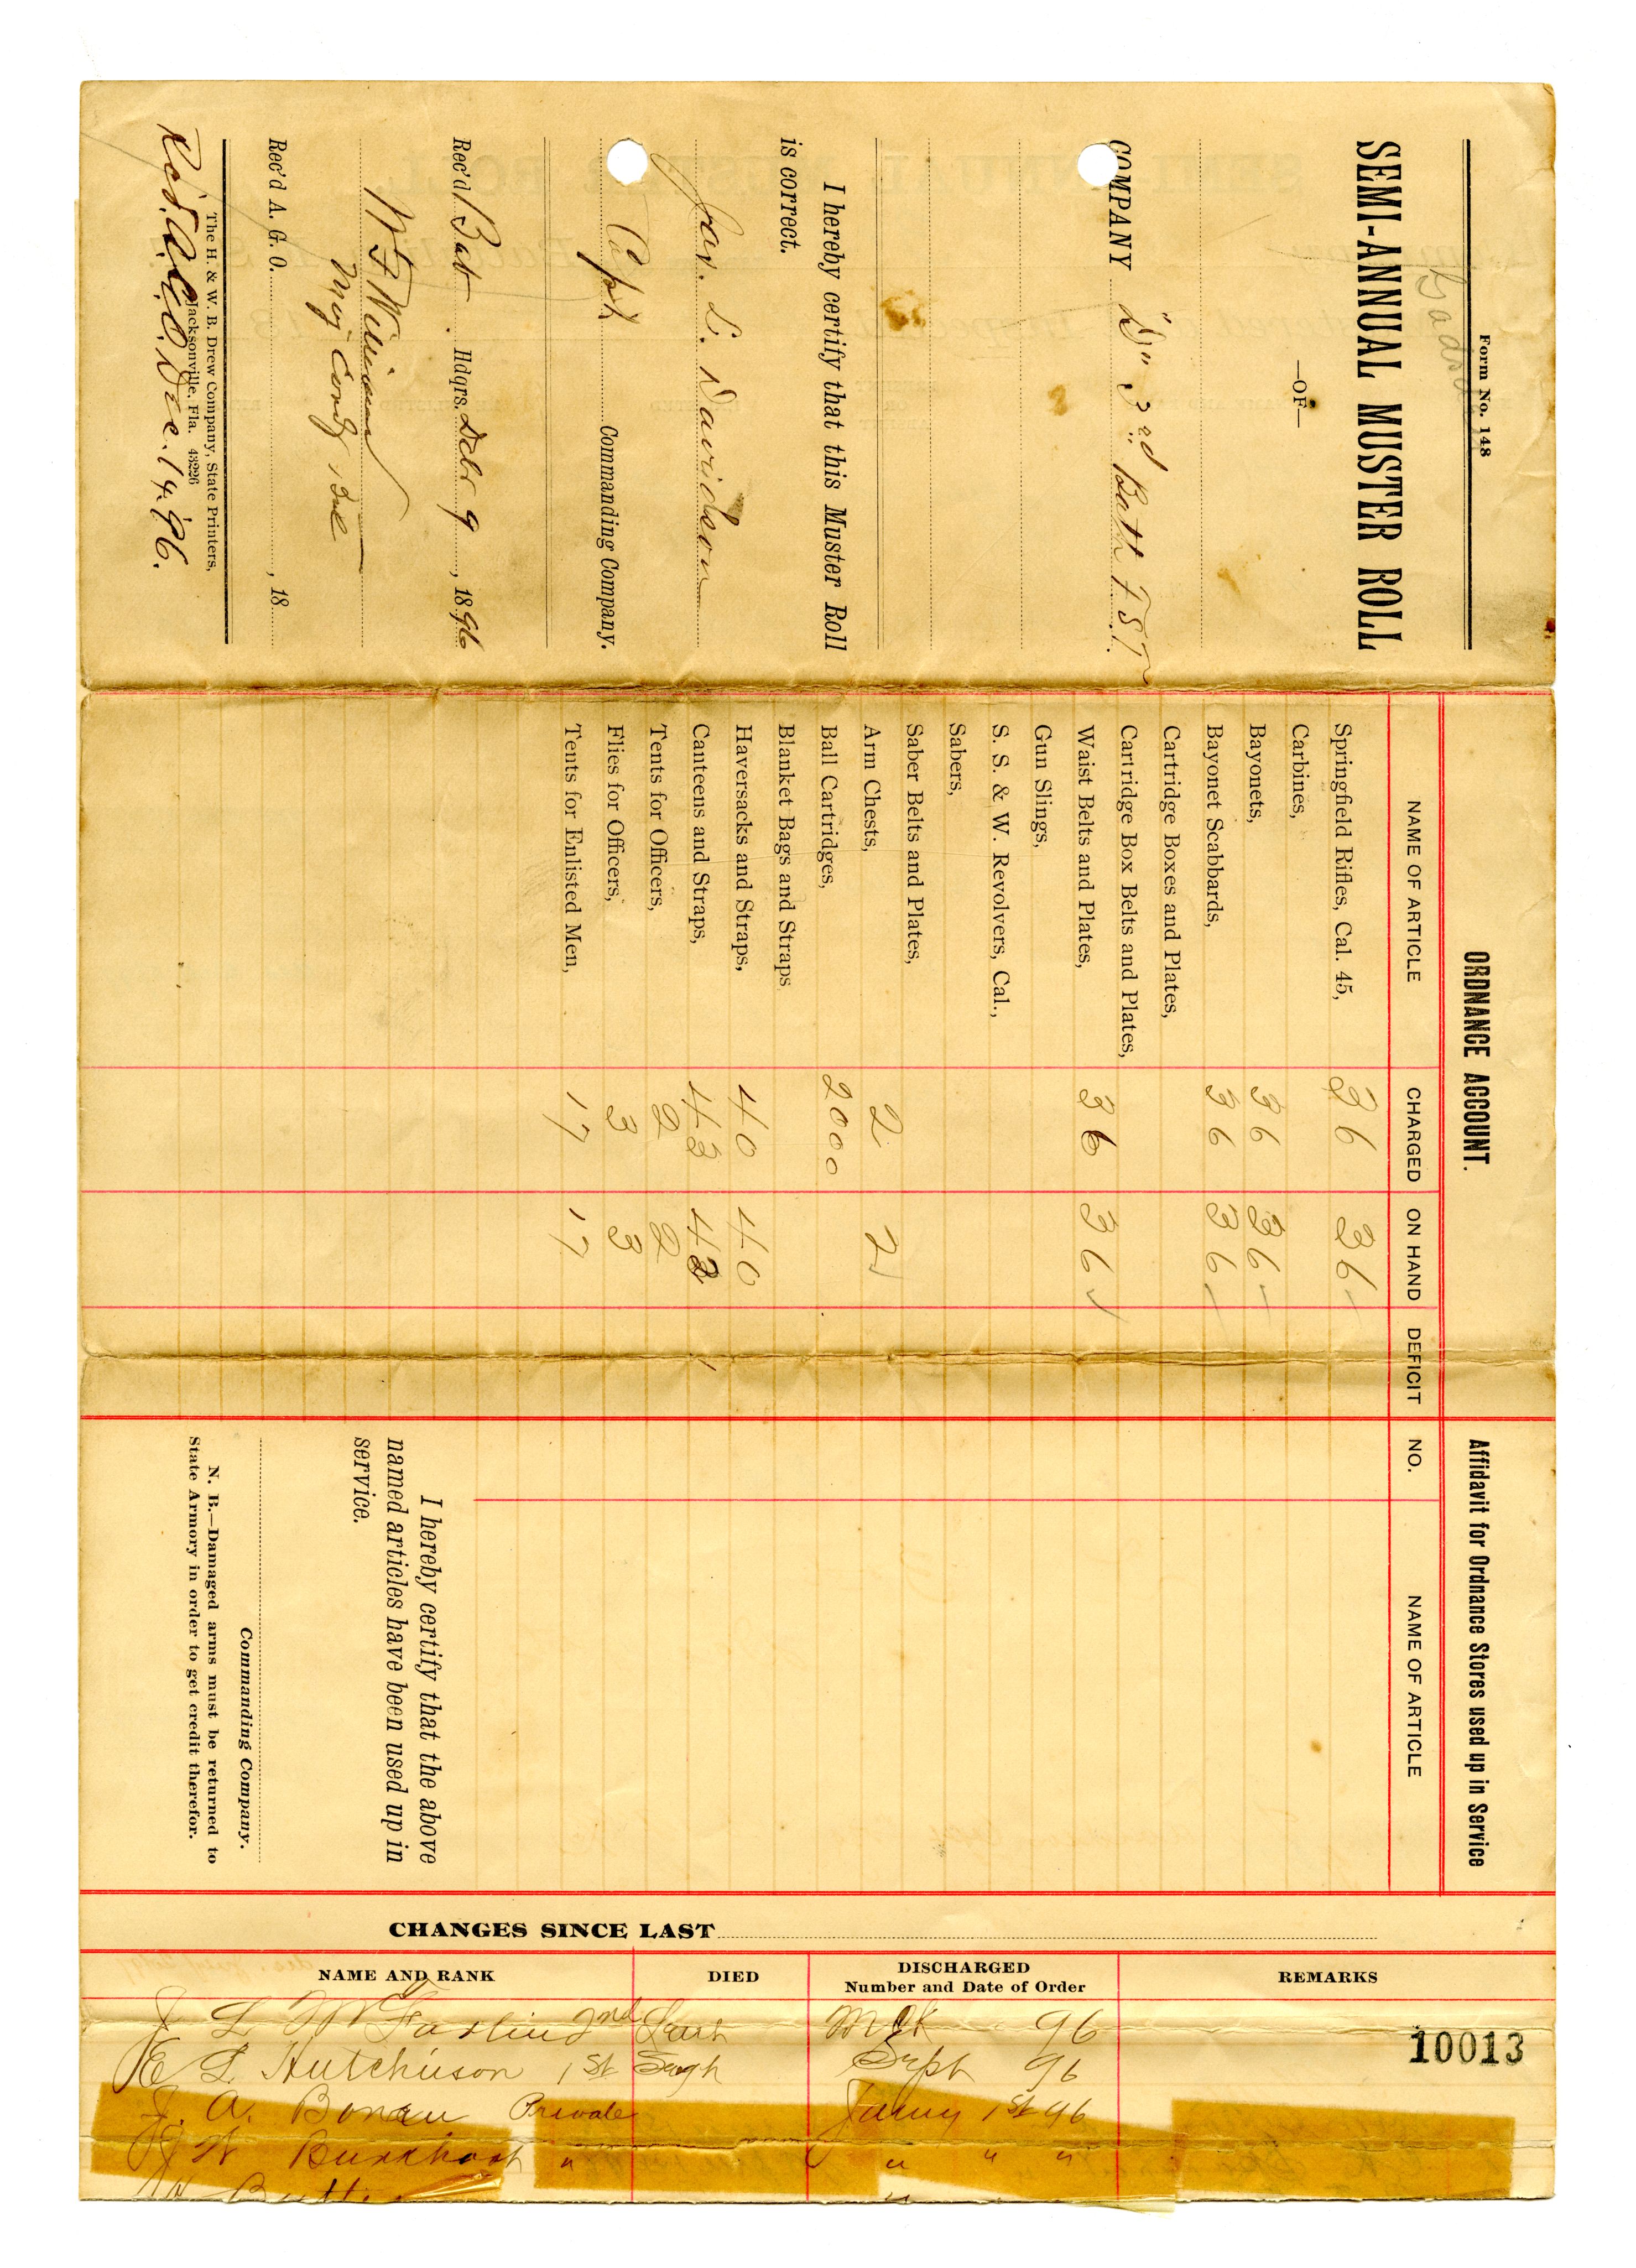 Form No. 148
SEMI-ANNUAL MUSTER ROLL
—OF—
COMPANY "D" 3rd Batt F.S.T.
I hereby certify that this Muster Roll
is correct.
Jas. L. Davidson
Capt Commanding Company.
Rec'd Bat. Hdqrs. Decbr 9, 1896
W F Williams
Maj Comdg
Rec'd A. G. O. , 18
The H. & W. B. Drew Company, State Printers,
Jacksonville, Fla. 43226
Rcd. A.G.O. Dec. 14. '96.
ORDNANCE ACCOUNT.
NAME OF ARTICLE CHARGED ON HAND DEFICIT
Springfield Rifles, Cal. 45, 36 36
Carbines,
Bayonets, 36 36
Bayonet Scabbards, 36 36
Cartridge Boxes and Plates,
Cartridge Box Belts and Plates,
Waist Belts and Plates, 36 36
Gun Slings,
S. S. & W. Revolvers, Cal.,
Sabers,
Saber Belts and Plates,
Arm Chests, 2 2
Ball Cartridges, 2000
Blanket Bags and Straps
Haversacks and Straps, 40 40
Canteens and Straps, 43 43
Tents for Officers, 2 2
Flies for Officers, 3 3
Tents for Enlisted Men, 17 17
Affidavit for Ordnance Stores used up in Service
NO. NAME OF ARTICLE
I hereby certify that the above
named articles have been used up in
service.
Commanding Company.
N. B.—Damaged arms must be returned to
State Armory in order to get credit therefor.
CHANGES SINCE LAST
NAME AND RANK DIED DISCHARGED REMARKS
Number and Date of Order
J L McFaslin 2nd Lieut Mch 96
10013
E L Hutchinson 1st Sergt Sept 96
J. A. Bonau Private Jany 1st 96
W Burkhart " " " "
"